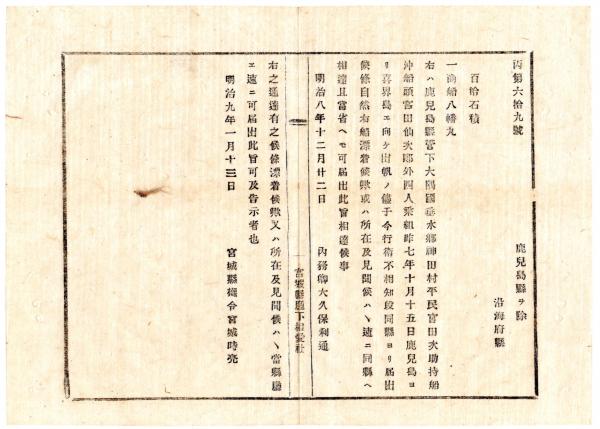 丙第六拾九號
鹿兒島縣ヲ除
沿海府縣
百拾石積
一商船八幡丸
右ハ鹿兒島縣管下大隅國垂水鄕神田村平民宮田次助持船
沖船頭宮田仙次郎外四人乘組昨七年十月十五日鹿兒島ヨ
リ喜界島エ向ケ出帆ノ儘于今行衛不相知段同縣ヨリ届出
候條自然右船漂着候歟或ハ所在及見聞候ハヽ速ニ同縣ヘ
相達且當省ヘモ可届出此旨相達候事
明治八年十二月廿二日
內務卿大久保利通
右之通達有之候條漂着候歟又ハ所在及見聞候ハヽ當縣廳
エ速ニ可届出此旨可及告示者也
明治九年一月十三日
宮城縣權令宮城時亮
宮城縣廳下